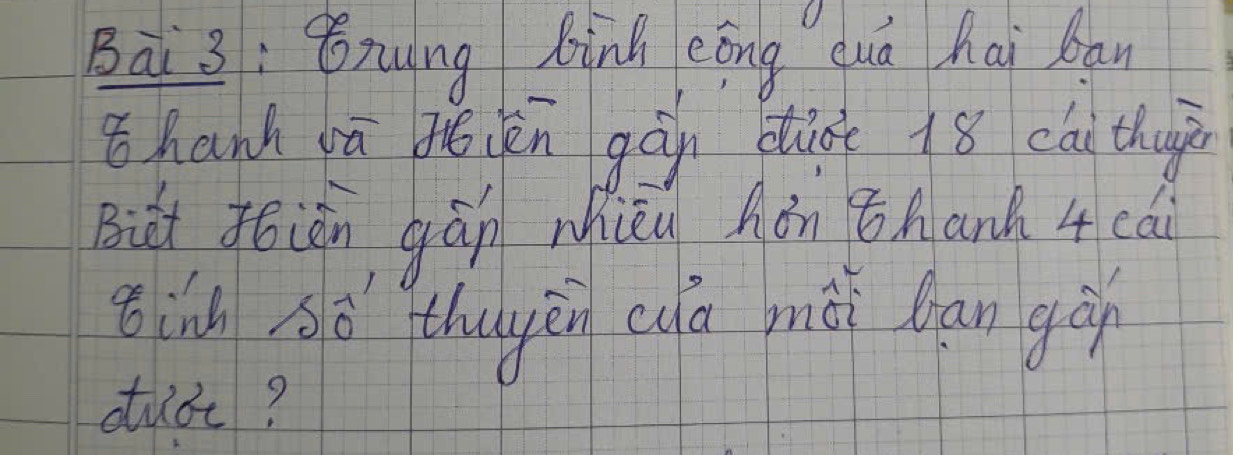 Bài 3: Trung bình cộng của hai bạn
Thanh và Hiền gấp được 18 cái thuyền
Biết Hiền gấp nhiều hơn Thanh 4 cái
Tính số thuyền của mỗi bạn gấp
được?